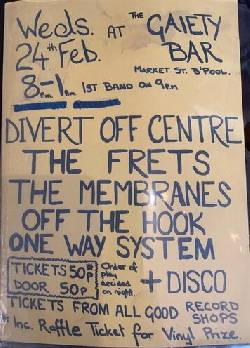 Weds. AT THE GAIETY
24th Feb. BAR
MARKET ST. B'POOL.
8pm-1am 1ST BAND ON 9pm
DIVERT OFF CENTRE
THE FRETS
THE MEMBRANES
OFF THE HOOK
ONE WAY SYSTEM
TICKETS 50p
DOOR 50p
Order of play decided on night.
+ DISCO
TICKETS FROM ALL GOOD RECORD SHOPS
Inc. Raffle Ticket for Vinyl Prize